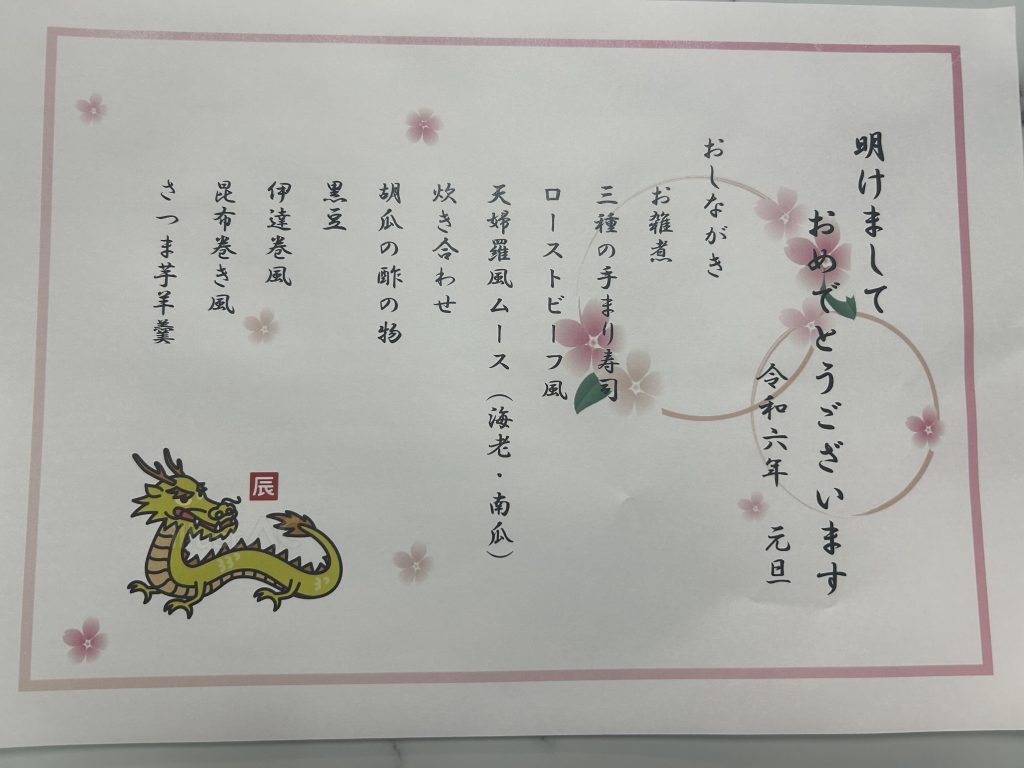 明けまして
おめでとうございます
令和六年　元旦
おしながき
お雑煮
三種の手まり寿司
ローストビーフ風
天婦羅風ムース（海老・南瓜）
炊き合わせ
胡瓜の酢の物
黒豆
伊達巻風
昆布巻き風
さつま芋羊羹
辰